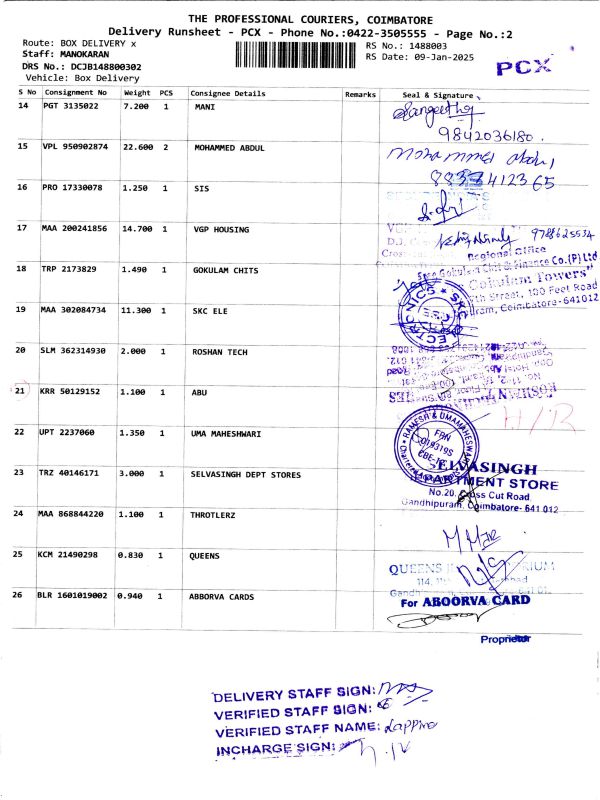 THE PROFESSIONAL COURIERS, COIMBATORE
Delivery Runsheet - PCX - Phone No.:0422-3505555 - Page No.:2
Route: BOX DELIVERY x
RS No.: 1488003
Staff: MANOKARAN
RS Date: 09-Jan-2025
DRS No.: DCJB148800302
PCX
Vehicle: Box Delivery
S No Consignment No Weight PCS Consignee Details Remarks Seal & Signature
14 PGT 3135022 7.200 1 MANI
9842036180.
15 VPL 950902874 22.600 2 MOHAMMED ABDUL
Mohammed abdul
16 PRO 17330078 1.250 1 SIS
17 MAA 200241856 14.700 1 VGP HOUSING
9788625534
Regional Office
18 TRP 2173829 1.490 1 GOKULAM CHITS
Sree Gokulam Chit & Finance Co.(P) Ltd
"Gokulam Towers"
Street, 100 Feet Road
Coimbatore-641012
19 MAA 302084734 11.300 1 SKC ELE
SKC ELECTRONICS
20 SLM 362314930 2.000 1 ROSHAN TECH
21 KRR 50129152 1.100 1 ABU
22 UPT 2237060 1.350 1 UMA MAHESHWARI
RAMESH & UMAMAHESWARI
FBN
23 TRZ 40146171 3.000 1 SELVASINGH DEPT STORES
SELVASINGH
DEPARTMENT STORE
No.20, Cross Cut Road
Gandhipuram, Coimbatore- 641 012
24 MAA 868844220 1.100 1 THROTLERZ
25 KCM 21490298 0.830 1 QUEENS
QUEENS
26 BLR 1601019002 0.940 1 ABBORVA CARDS
For ABOORVA CARD
Proprietor
DELIVERY STAFF SIGN:
VERIFIED STAFF SIGN:
VERIFIED STAFF NAME:
INCHARGE SIGN: